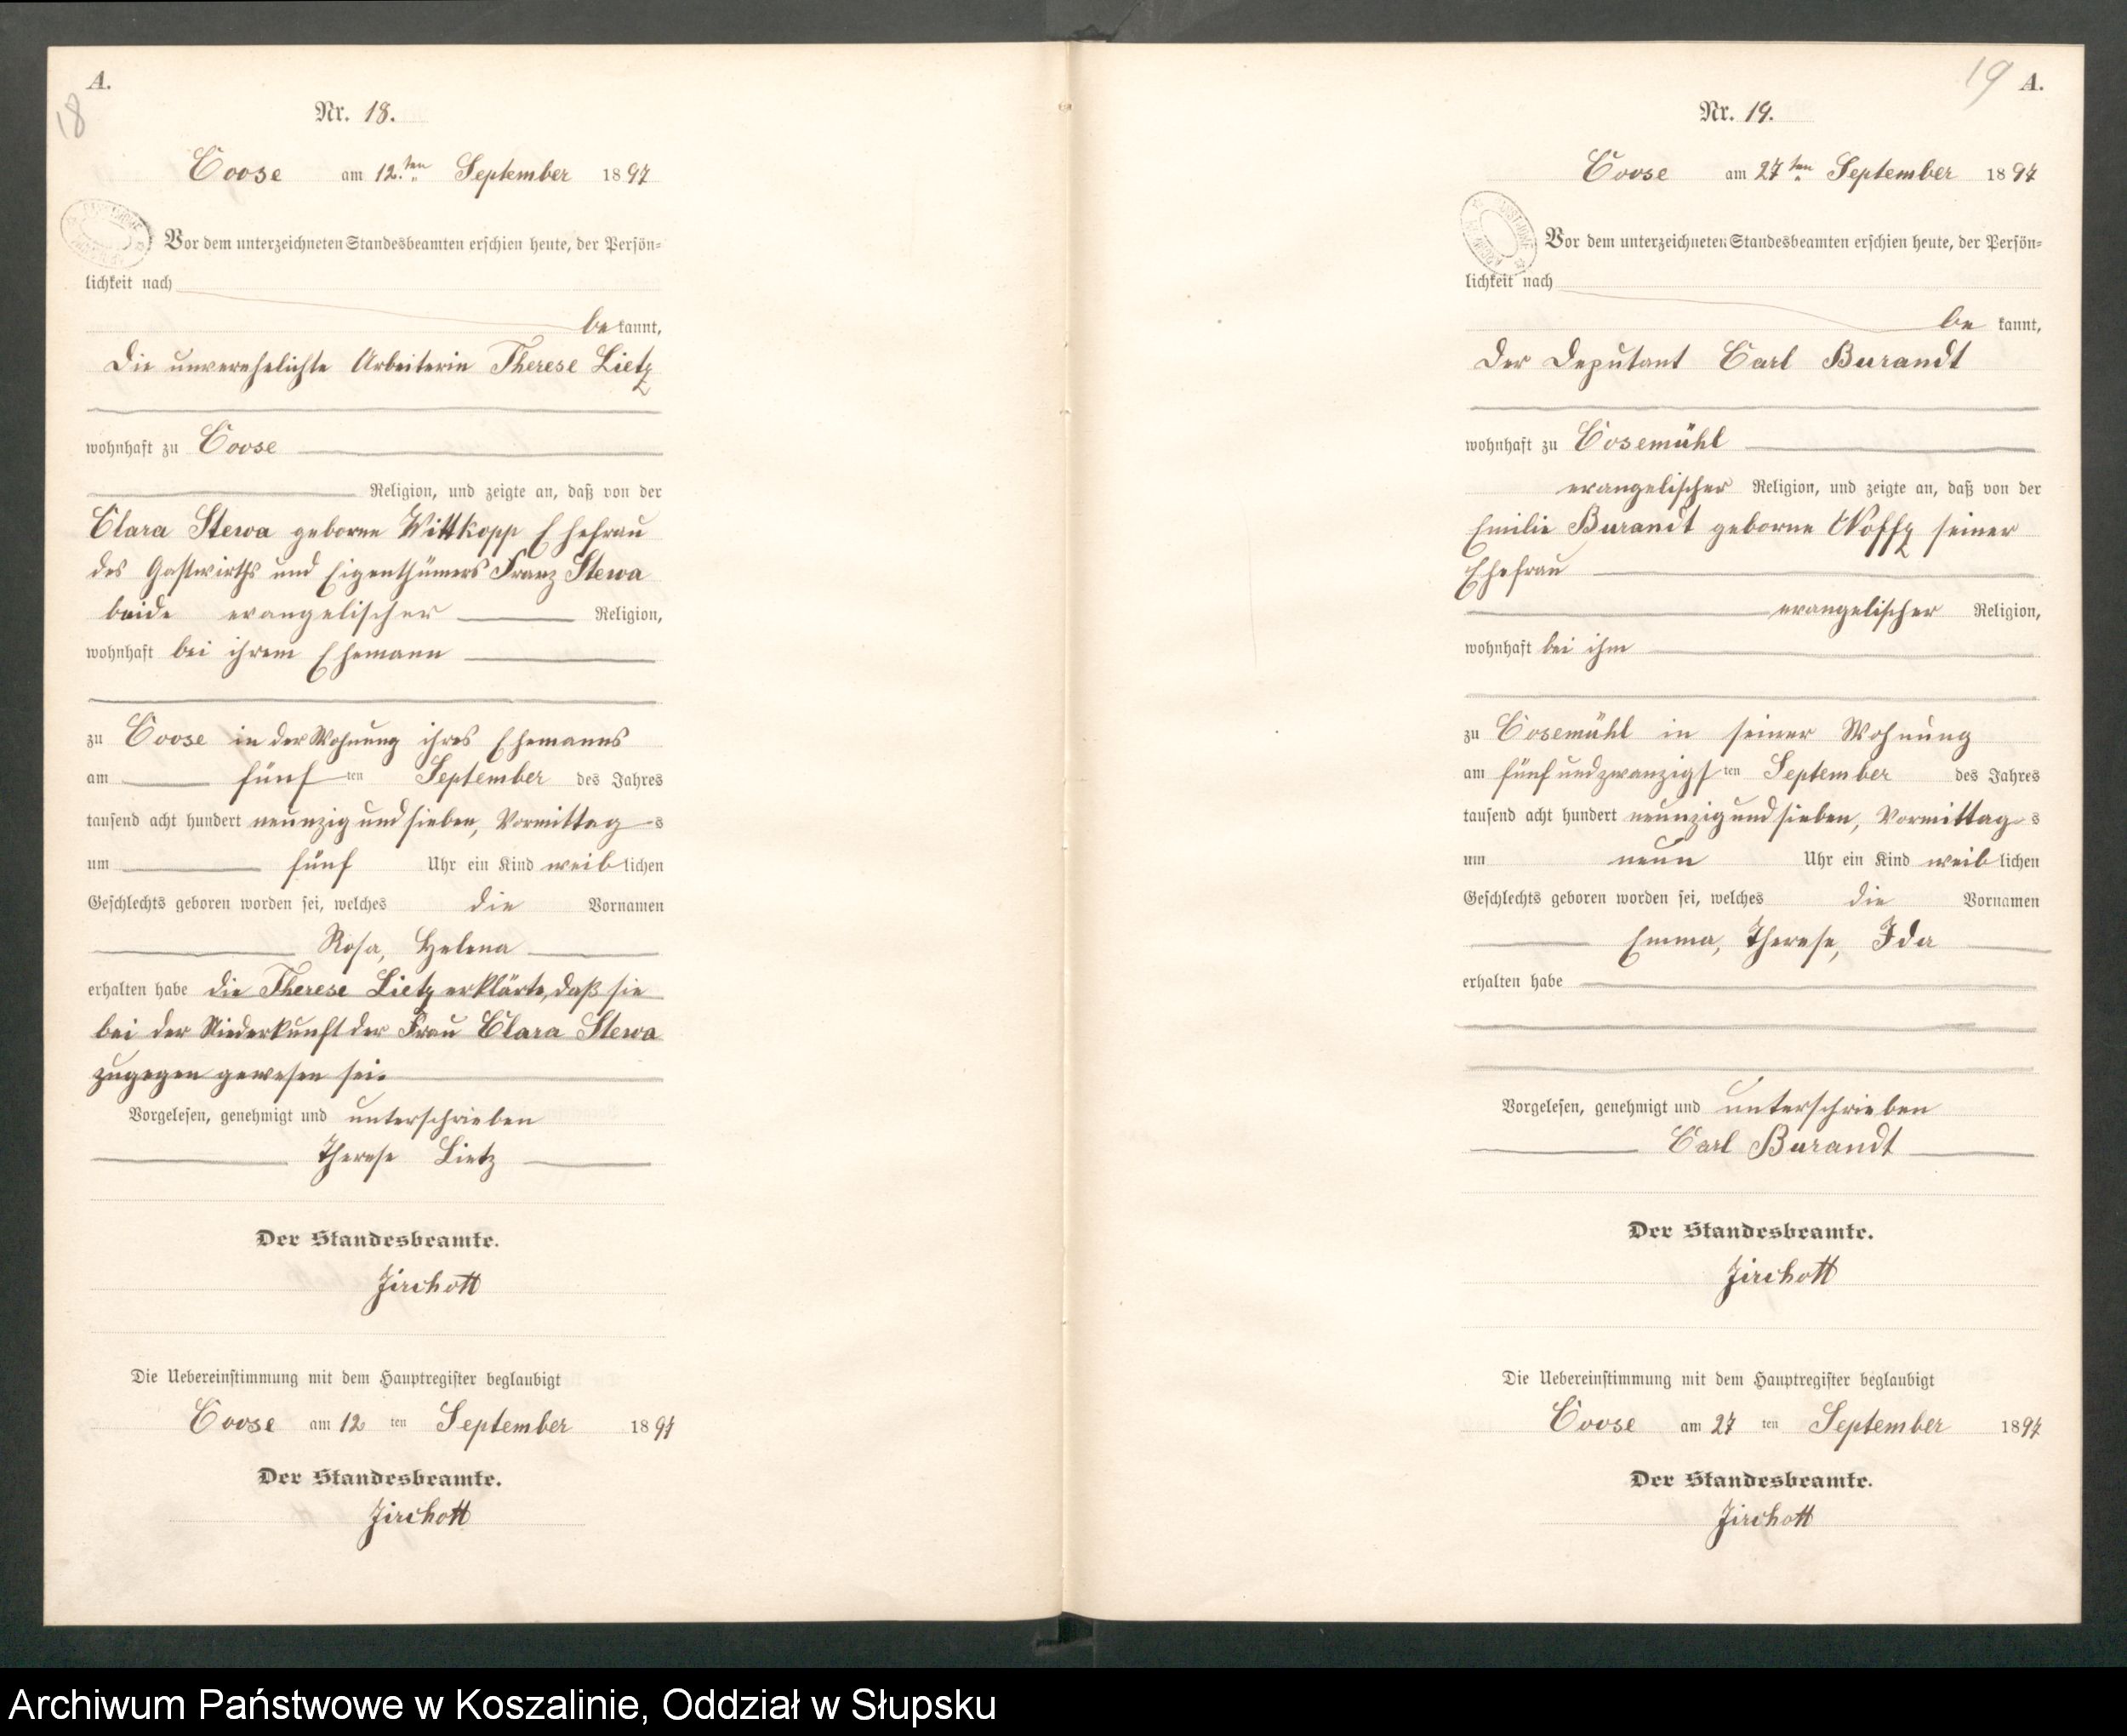 A.
18
Nr. 18.
Coose am 12.ten September 1897
Vor dem unterzeichneten Standesbeamten erschien heute, der Persön=
lichkeit nach
be kannt,
die unverehelichte Arbeiterin Therese Lietz
wohnhaft zu Coose
Religion, und zeigte an, daß von der
Clara Stewa geborne Wittkopp Ehefrau
des Gastwirths und Eigenthümers Franz Stewa
beide evangelischer Religion,
wohnhaft bei ihrem Ehemann
zu Coose in der Wohnung ihres Ehemanns
am fünf ten September des Jahres
tausend acht hundert neunzig und sieben, Vormittag s
um fünf Uhr ein Kind weib lichen
Geschlechts geboren worden sei, welches die Vornamen
Rosa, Helena
erhalten habe die Therese Lietz erklärte, daß sie
bei der Niederkunft der Frau Clara Stewa
zugegen gewesen sei.
Vorgelesen, genehmigt und unterschrieben
Therese Lietz
Der Standesbeamte.
Jirchott
Die Uebereinstimmung mit dem Hauptregister beglaubigt
Coose am 12 ten September 1897
Der Standesbeamte.
Jirchott
19 A.
Nr. 19.
Coose am 27ten September 1897
Vor dem unterzeichneten Standesbeamten erschien heute, der Persön=
lichkeit nach
be kannt,
der Deputant Carl Burandt
wohnhaft zu Cosemühl
evangelischer Religion, und zeigte an, daß von der
Emilie Burandt geborne Noffz seiner
Ehefrau
evangelischer Religion,
wohnhaft bei ihm
zu Cosemühl in seiner Wohnung
am fünf und zwanzigs ten September des Jahres
tausend acht hundert neunzig und sieben, Vormittag s
um neun Uhr ein Kind weib lichen
Geschlechts geboren worden sei, welches die Vornamen
Emma, Therese, Ida
erhalten habe
Vorgelesen, genehmigt und unterschrieben
Carl Burandt
Der Standesbeamte.
Jirchott
Die Uebereinstimmung mit dem Hauptregister beglaubigt
Coose am 27 ten September 1897
Der Standesbeamte.
Jirchott
Archiwum Państwowe w Koszalinie, Oddział w Słupsku